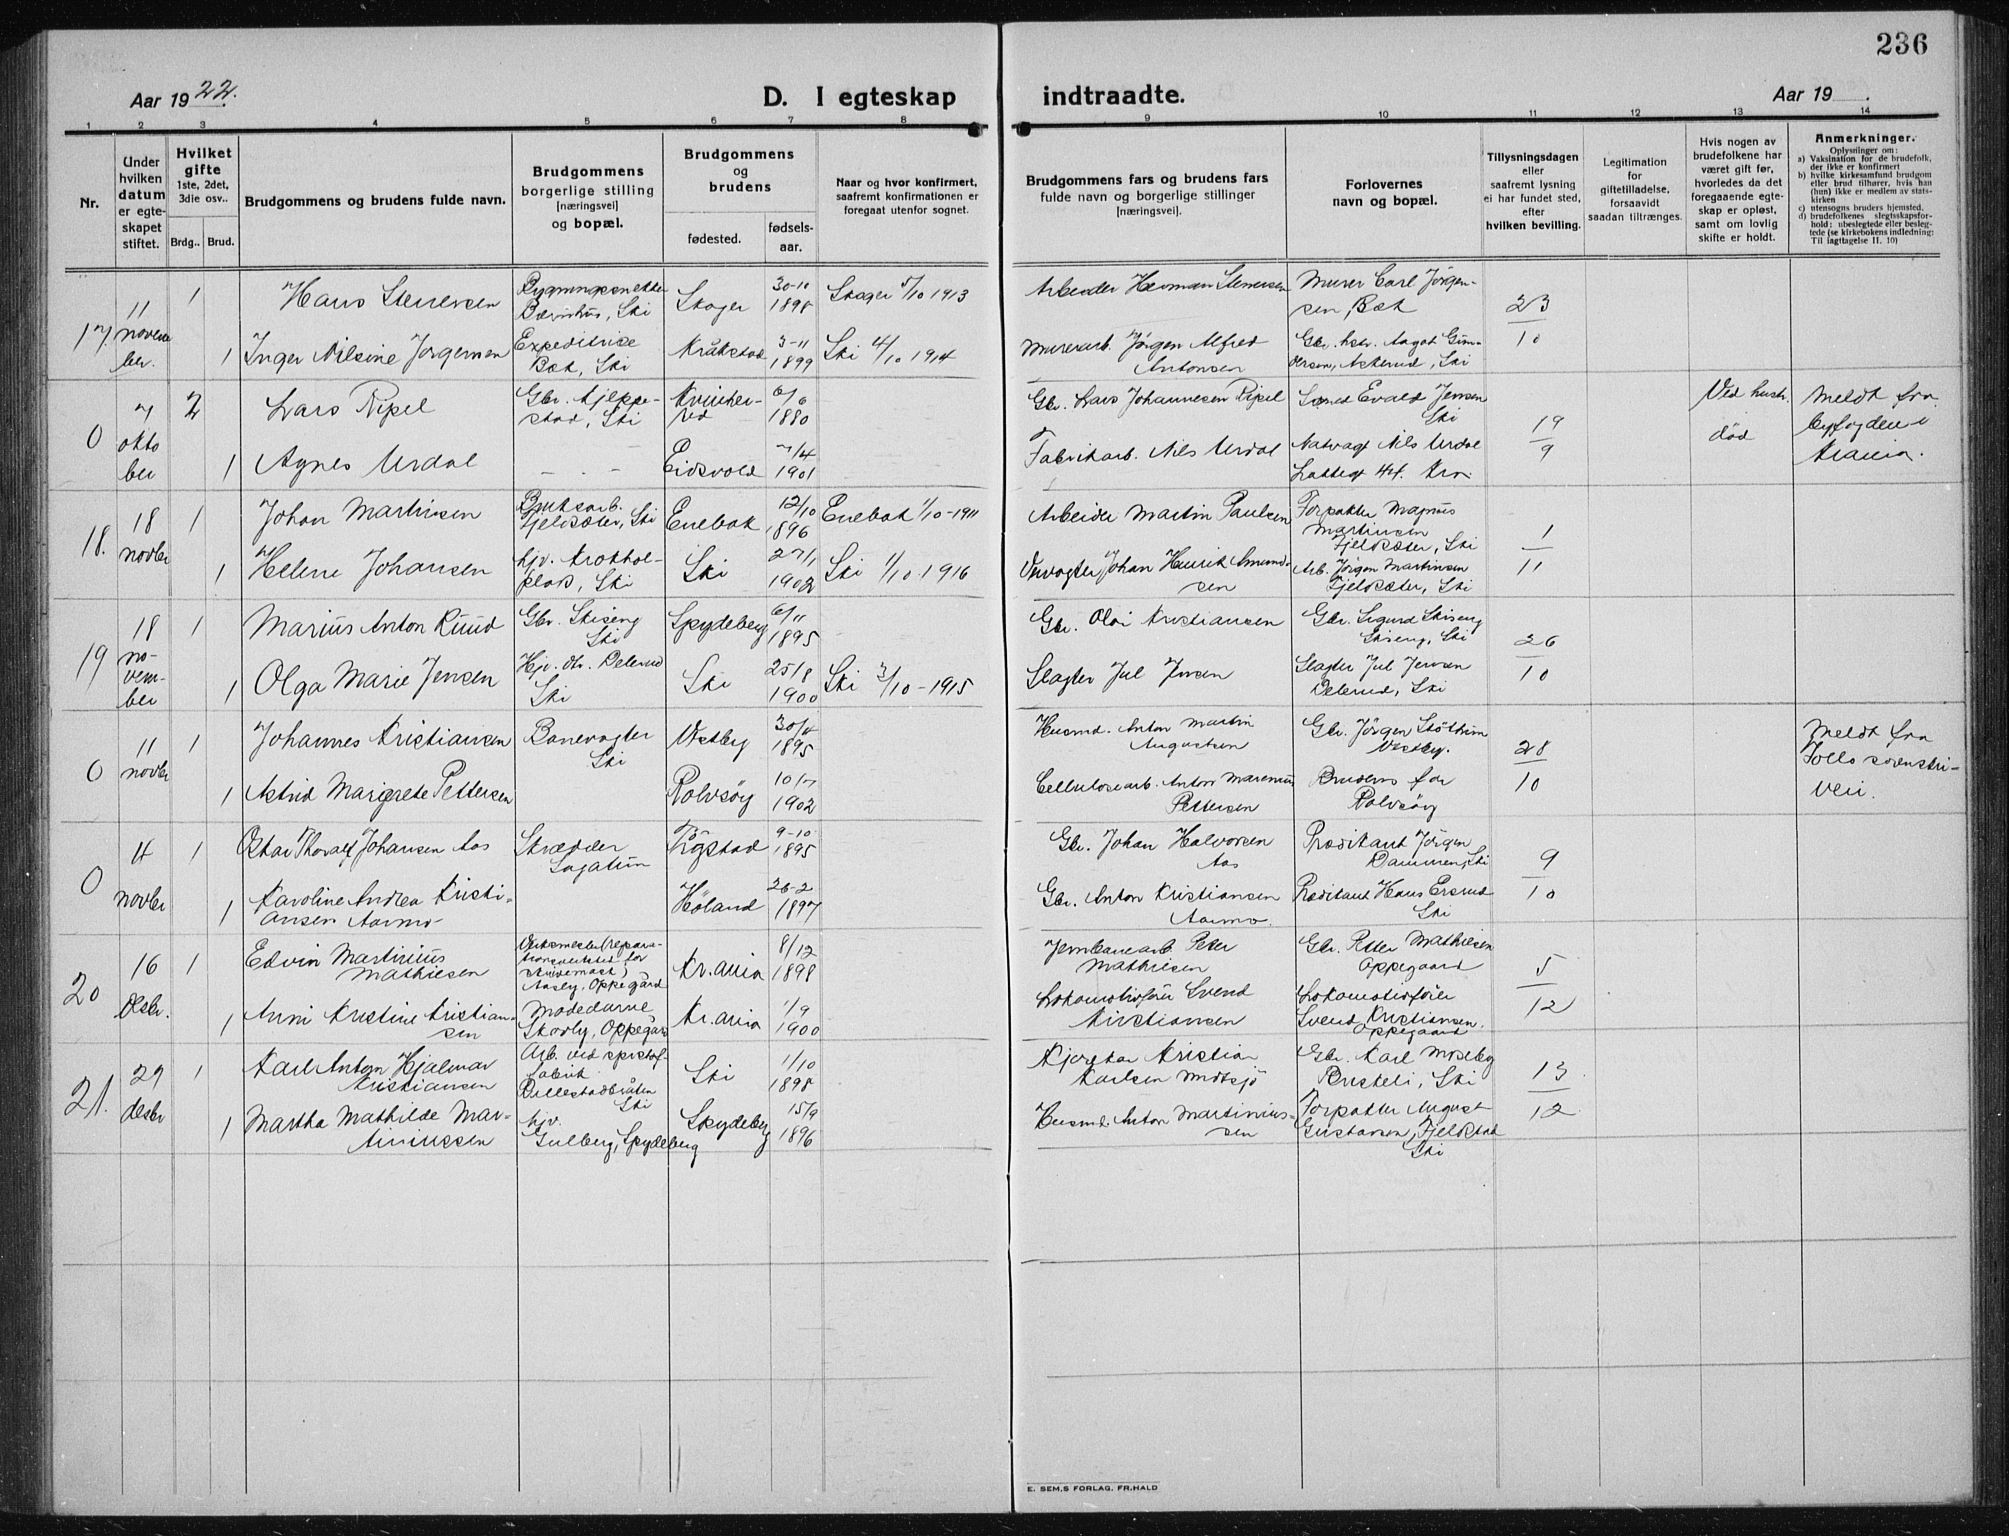 236
Aar 1922.
D. I egteskap
indtraadte.
Aar 19 .
1 2 3 4 5 6 7 8 9 10 11 12 13 14
Nr.
Under
hvilken
datum
er egte-
skapet
stiftet.
Hvilket
gifte
1ste, 2det,
3die osv..
Brdg.. Brud.
Brudgommens og brudens fulde navn.
Brudgommens
borgerlige stilling
[næringsvei]
og bopæl.
Brudgommens
og
brudens
fødested.
fødsels-
aar.
Naar og hvor konfirmert,
saafremt konfirmationen er
foregaat utenfor sognet.
Brudgommens fars og brudens fars
fulde navn og borgerlige stillinger
[næringsvei].
Forlovernes
navn og bopæl.
Tillysningsdagen
eller
saafremt lysning
ei har fundet sted,
efter
hvilken bevilling.
Legitimation
for
giftetilladelse,
forsaavidt
saadan tiltrænges.
Hvis nogen av
brudefolkene har
været gift før,
hvorledes da det
foregaaende egte-
skap er opløst,
samt om lovlig
skifte er holdt.
Anmerkninger.
Oplysninger om:
a) Vaksination for de brudefolk,
der ikke er konfirmert
b) hvilke kirkesamfund brudgom
eller brud tilhører, hvis han
(hun) ikke er medlem av stats-
kirken
c) utensogns bruders hjemsted.
d) brudefolkenes slegtsskapsfor-
hold: ubeslegtede eller besleg-
tede (se kirkebokens indledning:
Til iagttagelse II. 10)
17
11
novem
ber.
1
Hans Stenersen
Bærnhus, Ski
Skoger
30-10
1898
Skoger 5/10 1913
Arbeider Herman Stenersen
Murer Carl Jörgen-
sen, Bæk
23
10
1
Inger Nilsine Jørgensen
Expeditrice
Bæk, Ski
Kråkstad
3-11
1899
Ski 4/10 1914
Murerarb. Jörgen Alfred
Antonsen
Gbr. hstr. Aagot Gun-
dersen, Askerud, Ski
0
7
okto
ber
2
Lars Ripel
Gbr. Kjeppe-
stad, Ski
Kvinher-
red
6/6
1880
Gbr. Lars Johannesen Ripel
Evald Jensen
Ski
19
9
Ved hustr.
död
Meldt fra
byfogden i
Kr.ania.
1
Agnes Urdal
- - -
Eidsvold
7/4
1901
Fabrikarb. Nils Urdal
Natvagt Nils Urdal
44. Krs.
18.
18
novber
1
Johan Martinsen
Bruksarb.
Fjeldsæter, Ski
Enebak
12/10
1896
Enebak 1/10-1911
Arbeider Martin Paulsen
Forpakter Magnus
Martinsen
Fjeldsæter, Ski
1
11
1
Helene Johansen
hjv. Krokhol-
plas, Ski
Ski
27/1
1902
Ski 1/10. 1916
Johan Henrik Amund-
sen
Arb. Jörgen Martinsen
Fjeldsæter, Ski
19
18
no-
vem-
ber
1
Marius Anton Ruud
Gbr. Skiseng
Ski
Spydeberg
6/11
1895
Gbr. Olai Kristiansen
Gbr. Sigurd Skiseng
Skiseng, Ski
26
10
1
Olga Marie Jensen
Hjv. dtr. Delerud
Ski
Ski
25/8
1900
Ski 3/10-1915
Slagter Jul Jensen
Slagter Jul Jensen
Delerud, Ski
0
11
novber
1
Johannes Kristiansen
Banevogter
Ski
Vestby
1895
Husmd. Anton Martin
Augustsen
Gbr. Jörgen Stöttum
Vestby.
28
10
Meldt fra
Follo sorenskri-
veri.
1
Astrid Margrete Pettersen
Rolvsöy
10/7
1902
Cellulosearb. Anton Marenius
Pettersen
Brudens far
Rolvsöy
0
4
novber
1
Oskar Thoralf Johansen Aas
Skrædder
Sagatun
Trögstad
9-10
1895
Gbr. Johan Halvorsen
Aas
Prædikant Jörgen
Dammen, Ski
9
10
1
Karoline Andrea Kristi-
ansen Aarmo
Höland
26-2
1897
Gbr. Anton Kristiansen
Aarmo.
Prædikant Hans Ersrud
Ski
20
16
desbr.
1
Edvin Martinius
Mathiesen
Verksmester (repara-
tionsverksted for
skrivemask.)
Aasly, Oppegård
Kr.ania
8/12
1898
Jernbanearb. Peter
Mathiesen
Gbr. Petter Mathiesen
Oppegaard
5
12
1
Anni Kristine Kristian-
sen
Modedame
Skovly, Oppegård
Kr.ania
1/9
1900
Lokomotivförer Svend
Kristiansen
Lokomotivförer
Svend Kristiansen.
Oppegaard
21.
29
desbr
1
Karl Anton Hjalmar
Kristiansen
Arb. ved
fabrik
Ski
Ski
1/10
1898
Kristian
Karlsen Midtsjö
Gbr. Karl Moseby
Ski
13
12
1
Martha Mathilde Mar-
tiniussen
hjv.
Gulberg, Spydeberg
Spydeberg
15/9
1896
Husmd. Anton Martinius-
sen
Forpakter August
Gustavsen, Fjeldstad
Ski
E. SEM,S FORLAG, FR.HALD